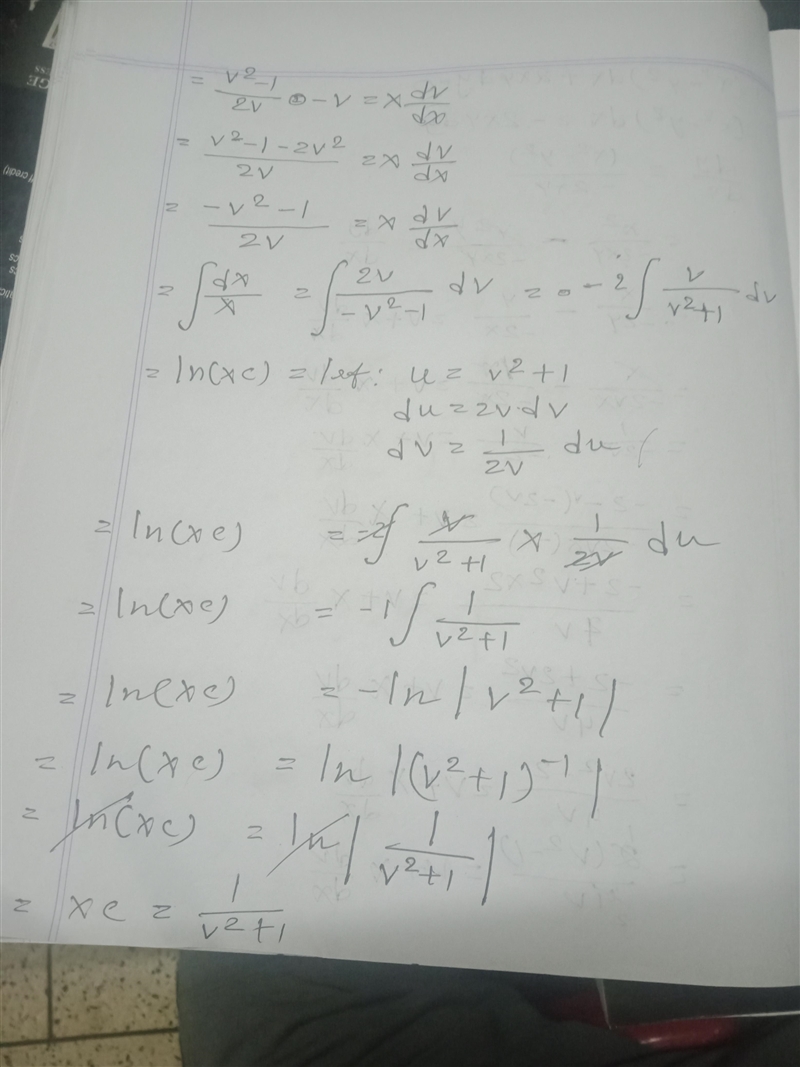 = \frac{v^2-1}{2v} - v = x \frac{dv}{dx}
= \frac{v^2-1-2v^2}{2v} = x \frac{dv}{dx}
= \frac{-v^2-1}{2v} = x \frac{dv}{dx}
= \int \frac{dx}{x} = \int \frac{2v}{-v^2-1} dv = -2 \int \frac{v}{v^2+1} dv
= ln(xc) = let: u = v^2+1
du = 2v·dv
dv = \frac{1}{2v} du
= ln(xc) = -2\int \frac{v}{v^2+1} × \frac{1}{2v} du
= ln(xc) = -1 \int \frac{1}{v^2+1}
= ln(xc) = -ln|v^2+1|
= ln(xc) = ln|(v^2+1)^{-1}|
= ln(xc) = ln|\frac{1}{v^2+1}|
= xc = \frac{1}{v^2+1}